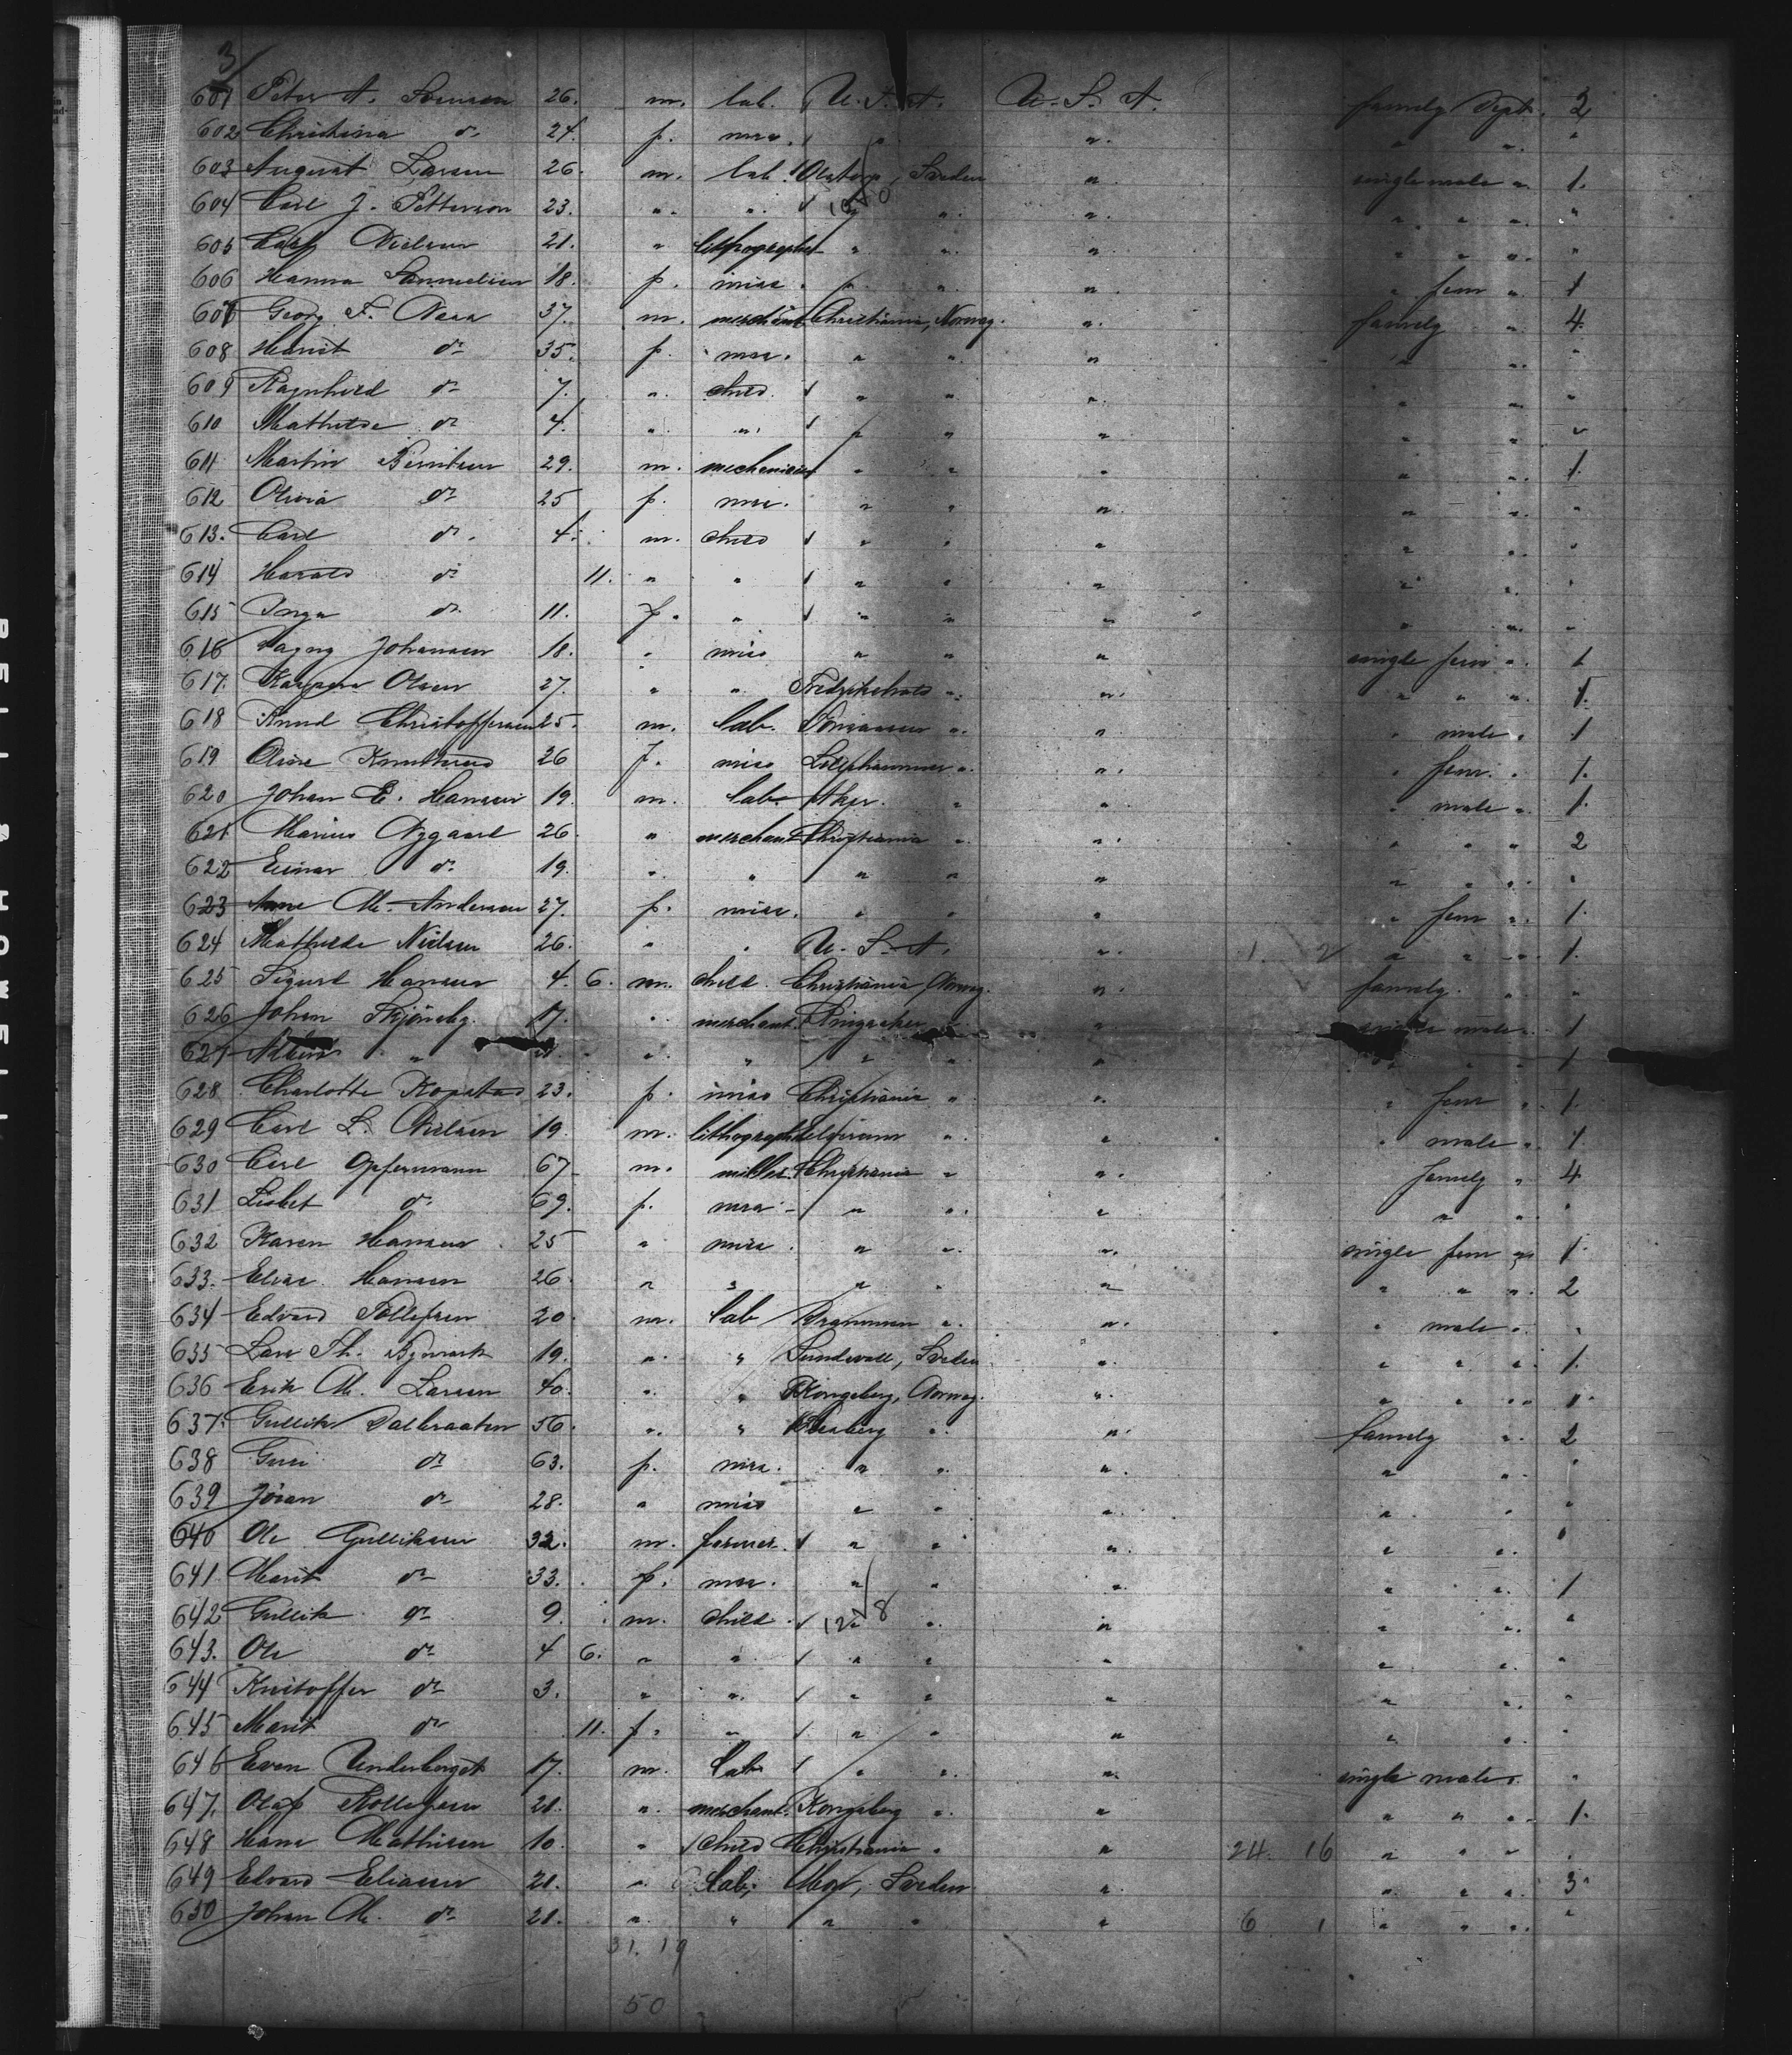 3/
601 Peter A. Svensen 26. m. lab. U. S. A. U. S. A. family Dept. 2
602 Christina do 24. f. mrs. " " " " "
603 August Larsen 26. m. lab. Sveden " single male " 1.
604 Carl J. Petterson 23. " " " " " " " " "
605 Carl Nielsen 21. " lithographer " " " " " " "
606 Hanna 18. f. miss. " " " " fem " 1
607 Georg F. 37. m. merchant Christiania, Norway. " family " 4.
608 Marit do 35. f. mrs. " " " " " "
609 Ragnhild do 7. " child. " " " " " "
610 Mathilde do 4. " " " " " " " "
611 Martin Berntsen 29. m. mechanician " " " " " 1.
612 Olivia do 25 f. mrs. " " " " " "
613. Carl do. 4. m. child " " " " " "
614 Harald do 11. " " " " " " " "
615 Inga do. 11. f. " " " " " " "
616 Dagny Johansen 18. " miss " " " single fem " 1
617. Olsen 27. " " Fredrikshald " " " " " 1.
618 Knud Christoffersen 25. m. lab. " " " male " 1
619 26 f. miss Lillehammer " " " fem. " 1.
620 Johan E. Hansen 19. m. lab. Aker. " " " male " 1.
621. Marius Nygaard 26. " merchant Christiania " " " " " 2
622 Einar do. 19. " " " " " " " " "
623 Anne M. Andersen 27. f. miss. " " " " fem " 1.
624 Mathilde Nielsen 26. " " U. S. A. " 1. 2 " " " 1.
625 Sigurd Hansen 4. 6. m. child. Christiania, Norway. " family. " "
626 Johan 17. " merchant. Ringsaker " " single male " 1
627 " " " " " " " " " 1
628 Charlotte Kopstad 23. f. miss Christiania " " " fem " 1.
629 Carl L. Nielsen 19. m. lithograph " " " male " 1.
630 Carl Opfermann 67 m. miller. Christiania " " family " 4.
631 Lisbet do. 69. f. mrs " " " " " "
632 Karen Hansen 25 " miss. " " " single fem " 1.
633. Elise Hansen 26. " " " " " " " " 2
634 Edvard Tollefsen 20. m. lab Drammen " " " male " "
635 Lars Th. 19. " " Sundsvall, Sveden " " " " 1.
636 Erik M. Larsen 40. " " Kongsberg, Norway. " " " " 1.
637. Gullik Dalbraaten 56. " " Flesberg " " family " 2
638 Guri do 63. f. mrs. " " " " " "
639 Jöran do 28. " miss " " " " " "
640 Ole Gulliksen 32. m. farmer. " " " " " "
641. Marit do 33. f. mrs. " " " " " 1
642 Gullik do 9. m. child. " " " " " "
643. Ole do 4 6. " " " " " " " "
644 Kristoffer do 3. " " " " " " " "
645 Marit do 11. f. " " " " " " "
646 Even Underberget 17. m. lab " " " single male " "
647. Olaf 21. " merchant. Kongsberg " " " " " 1.
648 Hans Mathisen 10. " child Christiania " " 24. 16 " " " "
649 Edvard Eliasen 21. " lab. Sveden " " " " 3.
650 Johan M. do 21. " " " " " 6 1 " " " "
31. 19
50